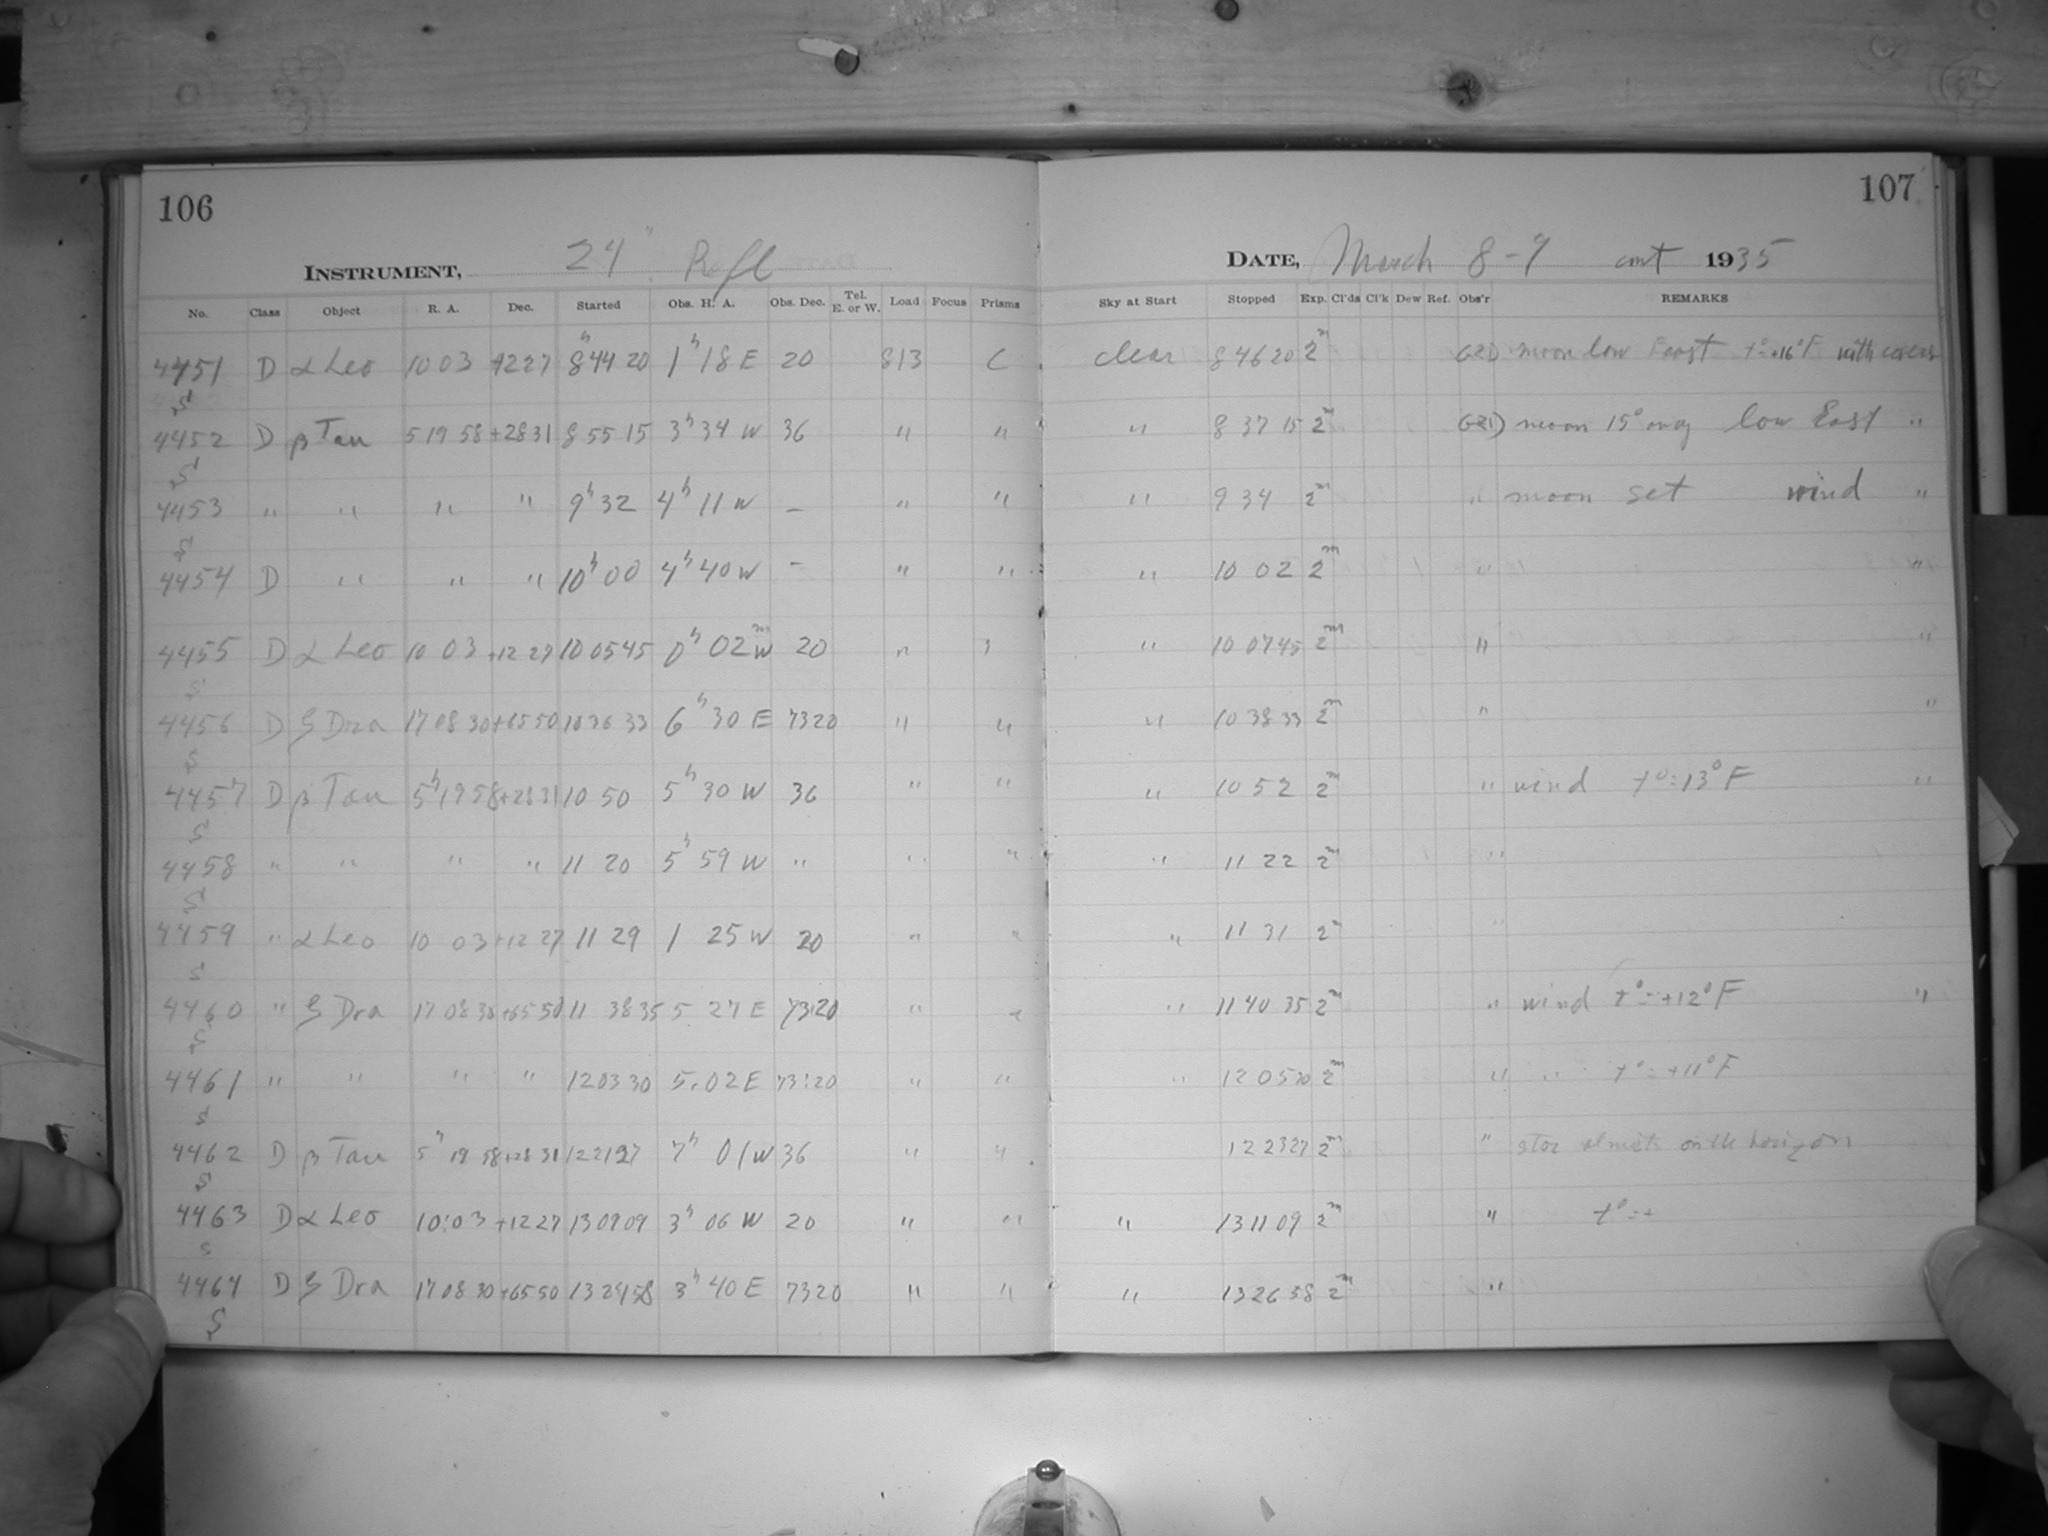 106
107
INSTRUMENT, 24" Refl
DATE, March 8-9 cont 1935
No. Class Object R. A. Dec. Started Obs. H. A. Obs. Dec. Tel. E. or W. Load Focus Prisms Sky at Start Stopped Exp. Cl'ds Cl'k Dew Ref. Obs'r REMARKS
4451 D α Leo 10 03 +12 27 8h 44 20 1h 18 E 20 813 C clear 8 46 20 2m moon low East t°=+16°F with covers
S
4452 D β Tau 5 19 58 +28 31 8 55 15 3h 34 W 36 " " " 8 37 15 2m moon 15° low East "
S
4453 " " " " 9h 32 4h 11 W – " " " 9 34 2m " moon set wind "
S
4454 D " " " 10h 00 4h 40 W – " " " 10 02 2m " "
4455 D α Leo 10 03 +12 27 10 05 45 0h 02m W 20 " " " 10 07 45 2m " "
S
4456 D ζ Dra 17 08 30 +65 50 10 36 33 6h 30 E 73 20 " " " 10 38 33 2m " "
S
4457 D β Tau 5h 19 58 +28 31 10 50 5h 30 W 36 " " " 10 52 2m " wind t°=13°F "
S
4458 " " " " 11 20 5h 59 W " " " " 11 22 2m "
S
4459 " α Leo 10 03 +12 27 11 29 1 25 W 20 " " " 11 31 2m "
S
4460 " ζ Dra 17 08 30 +65 50 11 38 35 5 27 E 73:20 " " " 11 40 35 2m " wind t°=+12°F "
S
4461 " " " " 12 03 30 5.02 E 73:20 " " " 12 05 30 2m " " t°=+11°F
S
4462 D β Tau 5h 19 58 +28 31 12 21 27 7h 01 W 36 " " 12 23 27 2m " star almost on the horizon
S
4463 D α Leo 10:03 +12 27 13 09 09 3h 06 W 20 " " " 13 11 09 2m " t°=+
S
4464 D ζ Dra 17 08 30 +65 50 13 24 58 3h 40 E 73 20 " " " 13 26 58 2m "
S